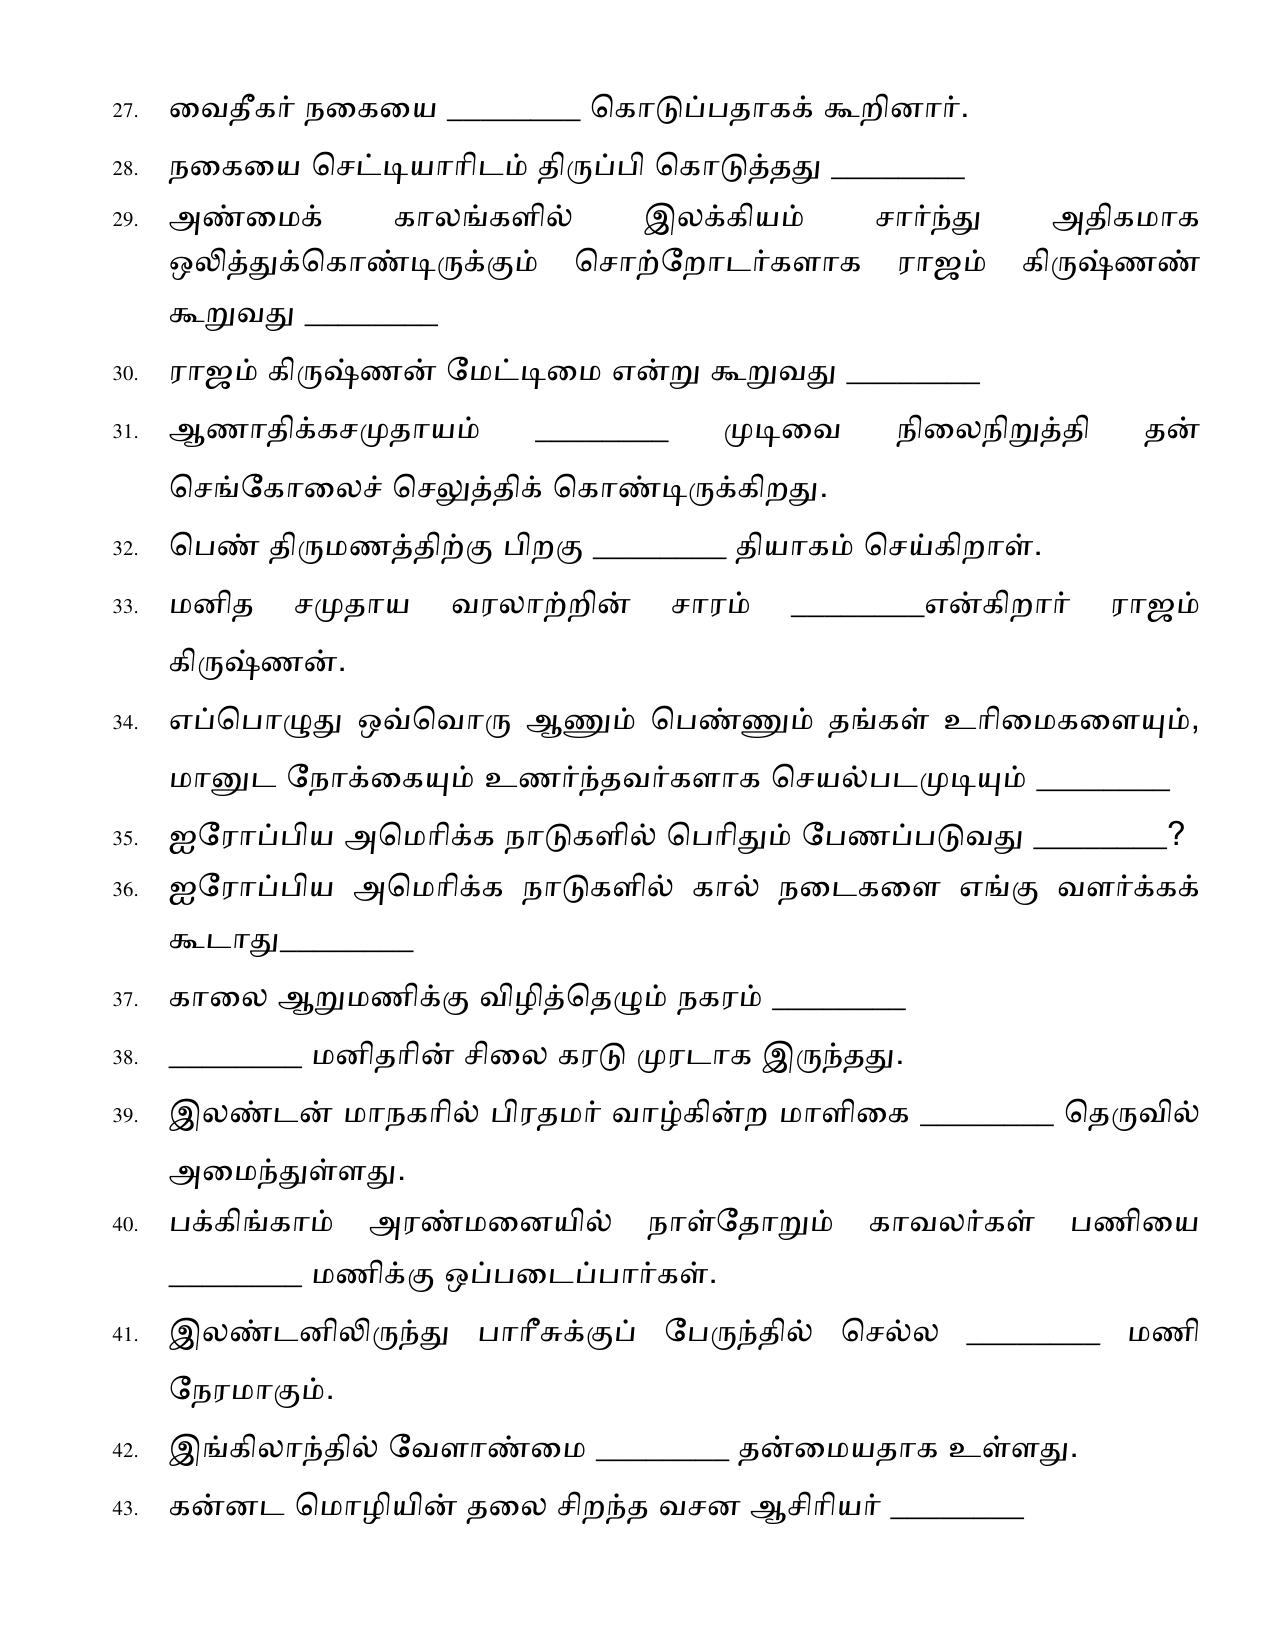 27. வைதீகர் நகையை ________ கொடுப்பதாகக் கூறினார்.
28. நகையை செட்டியாரிடம் திருப்பி கொடுத்தது ________
29. அண்மைக் காலங்களில் இலக்கியம் சார்ந்து அதிகமாக
ஒலித்துக்கொண்டிருக்கும் சொற்றோடர்களாக ராஜம் கிருஷ்ணண்
கூறுவது ________
30. ராஜம் கிருஷ்ணன் மேட்டிமை என்று கூறுவது ________
31. ஆணாதிக்கசமுதாயம் ________ முடிவை நிலைநிறுத்தி தன்
செங்கோலைச் செலுத்திக் கொண்டிருக்கிறது.
32. பெண் திருமணத்திற்கு பிறகு ________ தியாகம் செய்கிறாள்.
33. மனித சமுதாய வரலாற்றின் சாரம் ________என்கிறார் ராஜம்
கிருஷ்ணன்.
34. எப்பொழுது ஒவ்வொரு ஆணும் பெண்ணும் தங்கள் உரிமைகளையும்,
மானுட நோக்கையும் உணர்ந்தவர்களாக செயல்படமுடியும் ________
35. ஐரோப்பிய அமெரிக்க நாடுகளில் பெரிதும் பேணப்படுவது ________?
36. ஐரோப்பிய அமெரிக்க நாடுகளில் கால் நடைகளை எங்கு வளர்க்கக்
கூடாது________
37. காலை ஆறுமணிக்கு விழித்தெழும் நகரம் ________
38. ________ மனிதரின் சிலை கரடு முரடாக இருந்தது.
39. இலண்டன் மாநகரில் பிரதமர் வாழ்கின்ற மாளிகை ________ தெருவில்
அமைந்துள்ளது.
40. பக்கிங்காம் அரண்மனையில் நாள்தோறும் காவலர்கள் பணியை
________ மணிக்கு ஒப்படைப்பார்கள்.
41. இலண்டனிலிருந்து பாரீசுக்குப் பேருந்தில் செல்ல ________ மணி
நேரமாகும்.
42. இங்கிலாந்தில் வேளாண்மை ________ தன்மையதாக உள்ளது.
43. கன்னட மொழியின் தலை சிறந்த வசன ஆசிரியர் ________